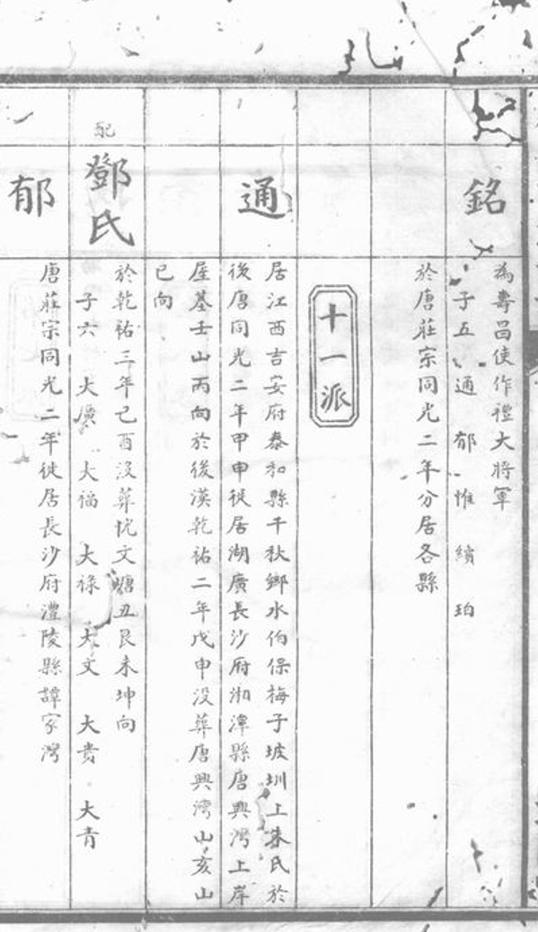 銘
為壽昌使作禮大將軍
子五 通 郁 惟 繽 珀
於唐莊宗同光二年分居各縣
十一派
通
居江西吉安府泰和縣千秋鄉水伯保梅子坡圳上朱氏於
後唐同光二年甲申徙居湖廣長沙府湘潭縣唐興灣上岸
屋基壬山丙向於後漢乾祐二年戊申没葬唐興灣山亥山
巳向
配
鄧氏
於乾祐三年己酉没葬忧文塘丑艮未坤向
子六 大廣 大福 大祿 大文 大貴 大青
郁
唐莊宗同光二年徙居長沙府澧陵縣譚家灣